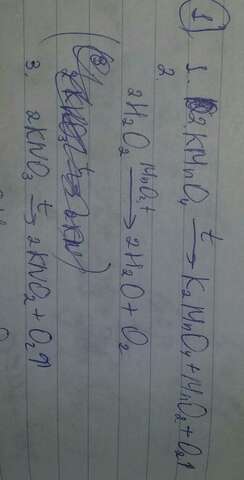 1
1. 2KMnO₄ →t K₂MnO₄ + MnO₂ + O₂↑
2.
2H₂O₂ →MnO₂,t 2H₂O + O₂
3. 2KNO₃ →t 2KNO₂ + O₂↑